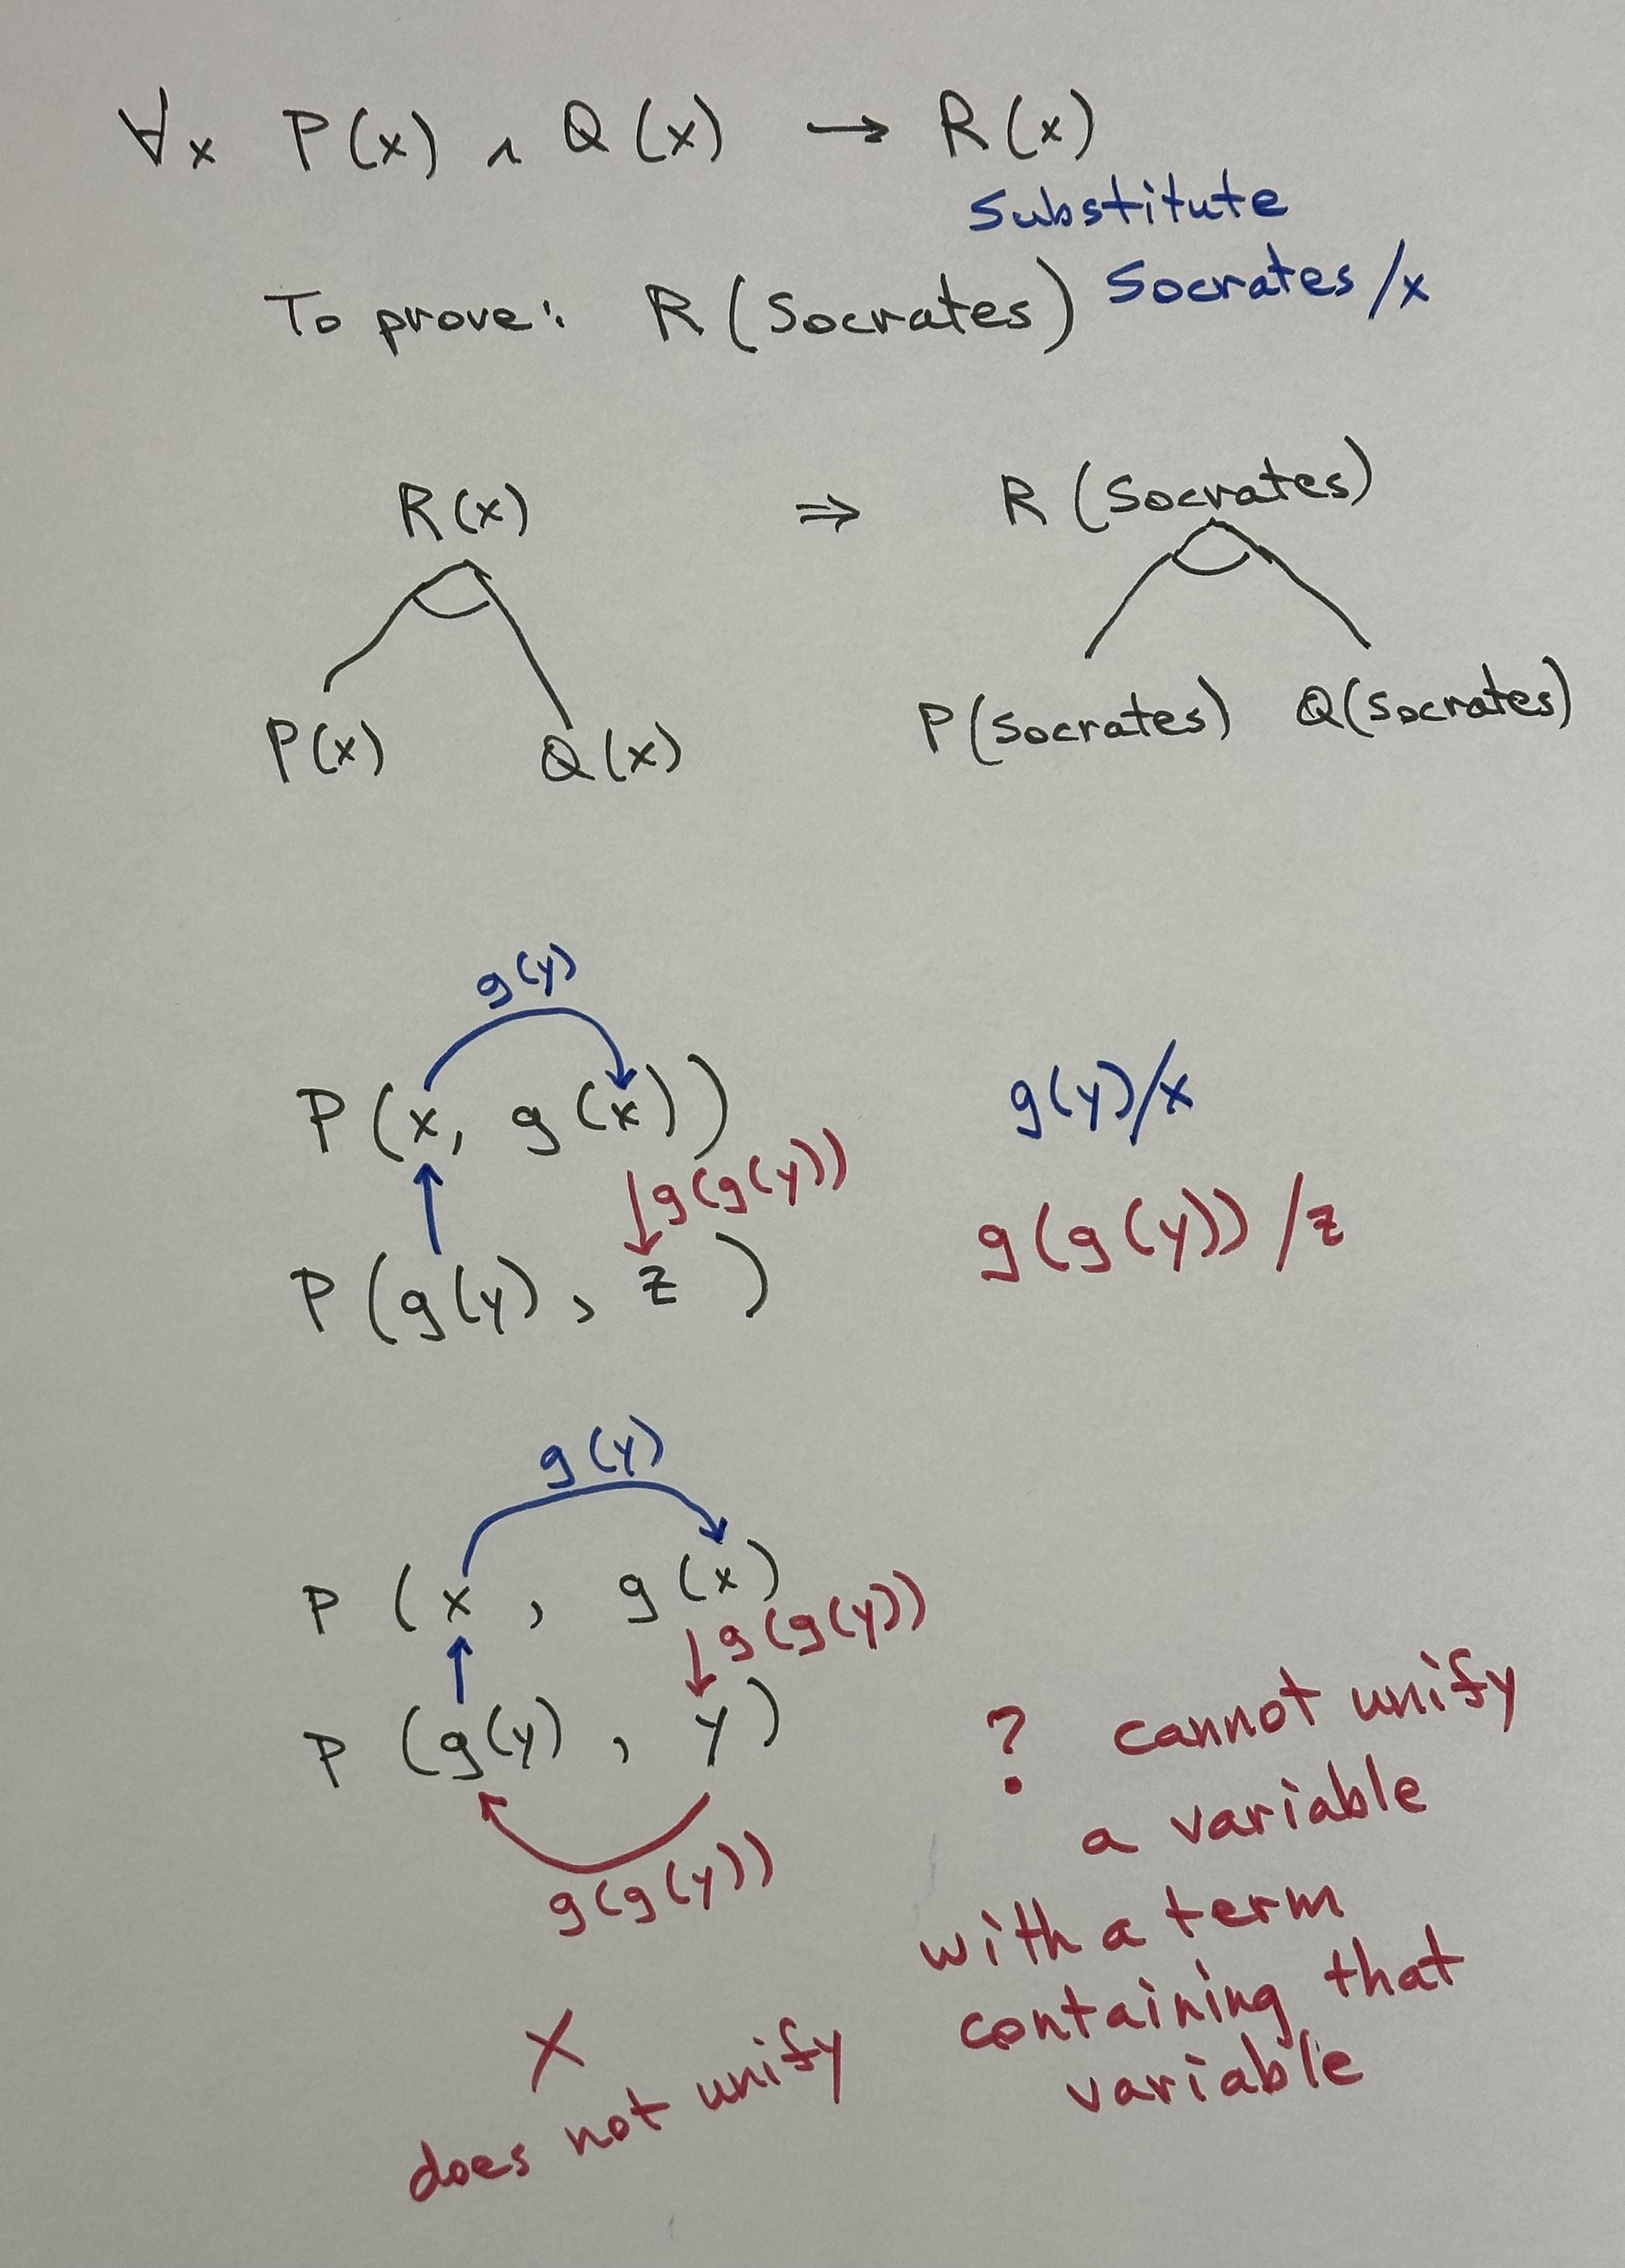 ∀x P(x) ∧ Q(x) → R(x)
Substitute
To prove: R(Socrates) Socrates/x
R(x) ⇒ R(Socrates)
P(x) Q(x) P(Socrates) Q(Socrates)
g(y)
P(x, g(x)) g(y)/x
g(g(y)) g(g(y))/z
P(g(y), z)
g(y)
P(x, g(x)
g(g(y))
P(g(y), y)
g(g(y))
? cannot unify
a variable
with a term
containing that
variable
X
does not unify